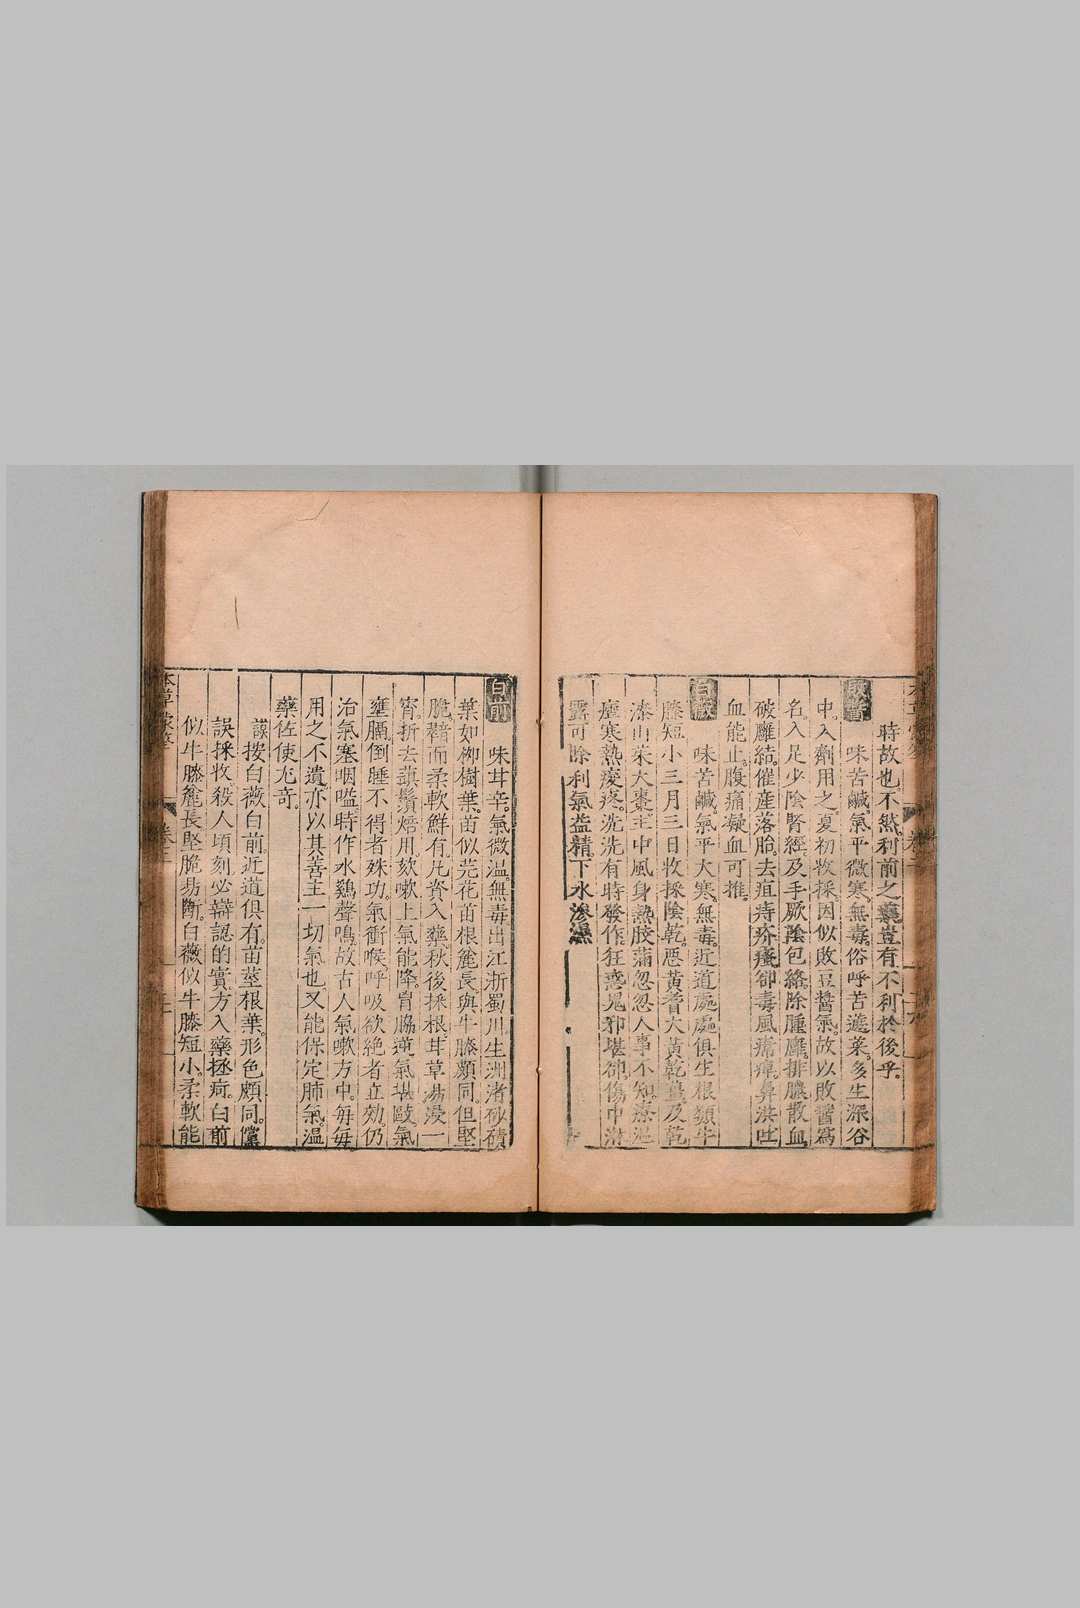 時故也不然利前之藥豈有不利於後乎
敗醬
味苦鹹氣平微寒無毒俗呼苦蘵菜多生深谷
中入劑用之夏初收採因似敗豆醬氣故以敗醬爲
名入足少陰腎經及手厥陰包絡除腫癰排膿散血
破癰結催產落胎去疽痔疥瘡卻毒風㾏痺鼻洪吐
血能止腹痛凝血可推
白薇
味苦鹹氣平大寒無毒近道處處俱生根類牛
膝短小三月三日收採陰乾惡黃耆大黃乾薑及乾
漆山茱大棗主中風身熱肢滿忽忽人事不知療溫
瘧寒熱痠疼洗洗有時發作狂惑鬼邪堪卻傷中淋
露可除利氣益精下水滲濕
白前
味甘辛氣微溫無毒出江浙蜀川生洲渚砂磧
葉如柳樹葉苗似芫花苗根麄長與牛膝頗同但堅
脆而柔軟鮮有凡資入藥秋後採根甘草湯浸一
宵折去蘆鬚焙用欬嗽上氣能降胃脇逆氣堪敺氣
壅膈倒睡不得者殊功氣衝喉呼吸欲絕者立効仍
治氣塞咽嗌時作水鷄聲鳴故古人氣嗽方中每每
用之不遺亦以其善主一切氣也又能保定肺氣溫
藥佐使尤奇
謨按白薇白前近道俱有苗莖根葉形色頗同儻
誤採收殺人頃刻必辯認的實方入藥拯疴白前
似牛膝麄長堅脆易斷白薇似牛膝短小柔軟能
本草蒙筌